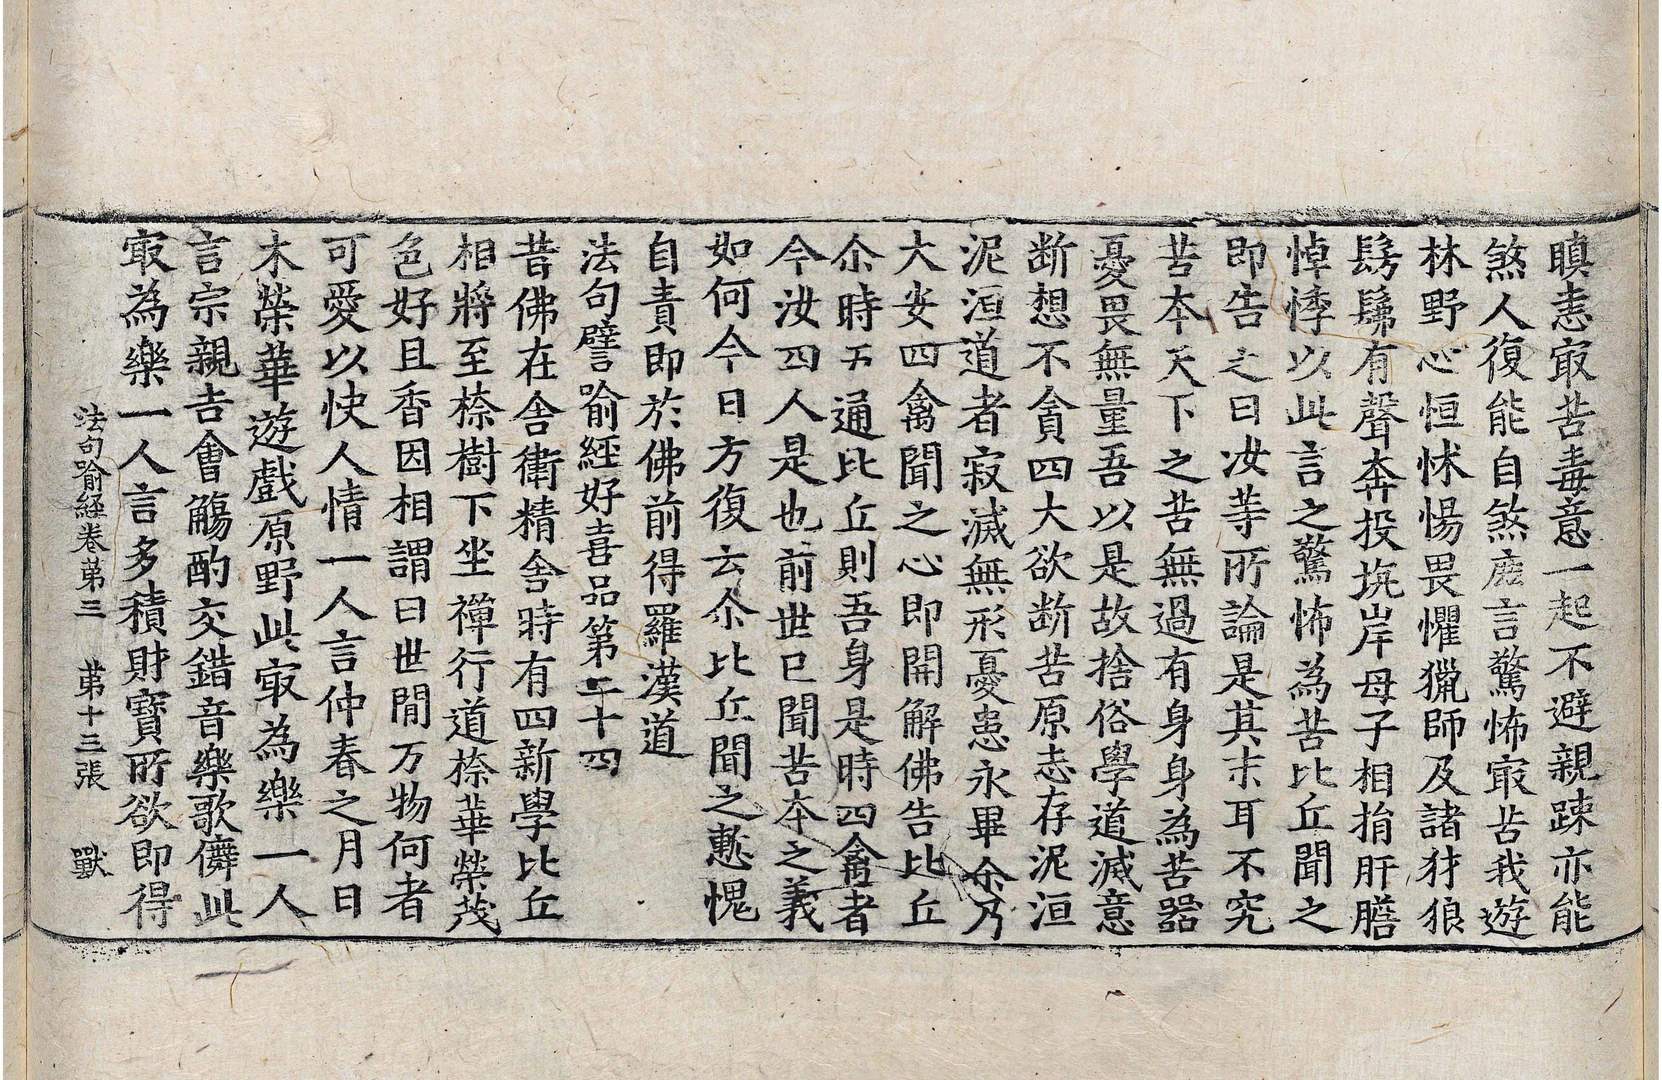 瞋恚㝡苦毒意一起不避親踈亦能
煞人復能自煞鹿言驚怖㝡苦我遊
林野心恒怵惕畏懼獵師及諸犲狼
髣髴有聲奔投坑岸母子相捐肝膽
悼悸以此言之驚怖為苦比丘聞之
即告之曰汝等所論是其末耳不究
苦本天下之苦無過有身身為苦器
憂畏無量吾以是故捨俗學道滅意
断想不貪四大欲断苦原志存泥洹
泥洹道者寂滅無形憂患永畢尒乃
大安四禽聞之心即開解佛告比丘
尒時五通比丘則吾身是時四禽者
今汝四人是也前世已聞苦本之義
如何今日方復云尒比丘聞之慙愧
自責即於佛前得羅漢道
法句譬喻經好喜品第二十四
昔佛在舍衛精舍時有四新學比丘
相將至㮈樹下坐禪行道㮈華榮茂
色好且香因相謂曰世閒万物何者
可愛以快人情一人言仲春之月日
木榮華遊戲原野此㝡為樂一人
言宗親吉會觴酌交錯音樂歌儛此
㝡為樂一人言多積財寶所欲即得
法句喻經卷第三 第十三張 獸